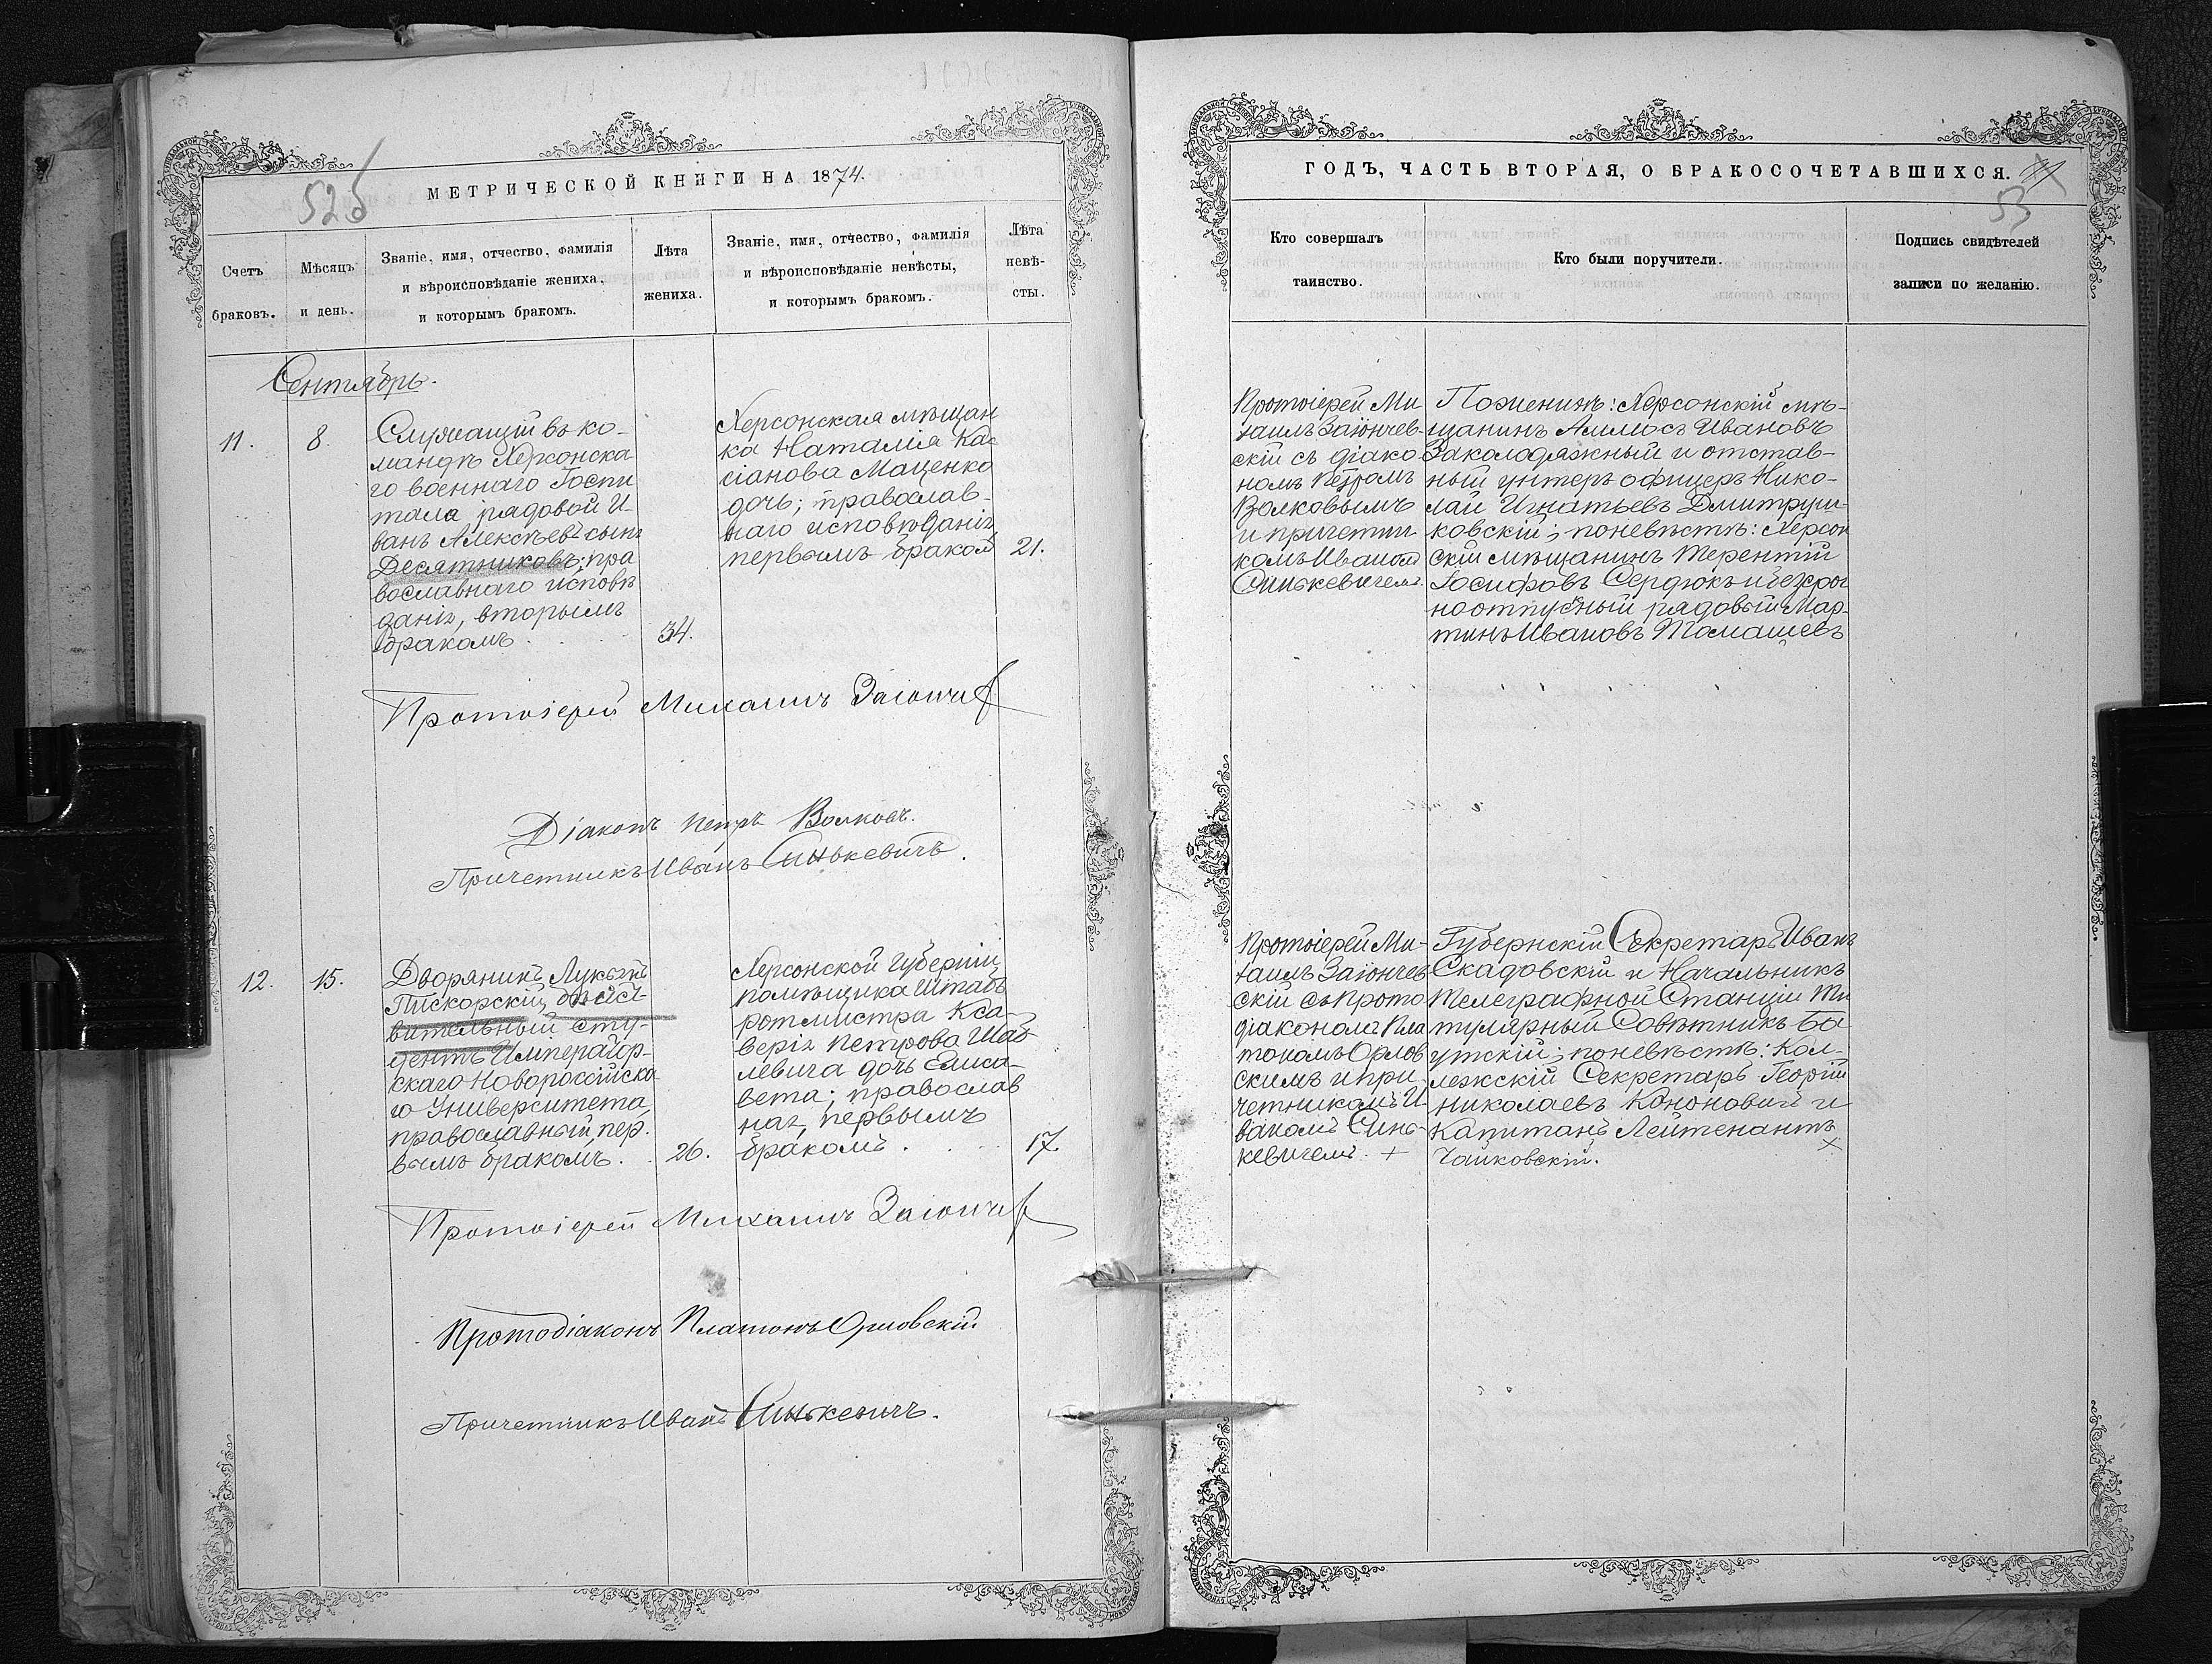 52б
МЕТРИЧЕСКОЙ КНИГИ НА 1874.
Счетъ браковъ.
Мѣсяцъ и день.
Званіе, имя, отчество, фамилія
и вѣроисповѣданіе жениха,
и которымъ бракомъ.
Лѣта жениха.
Званіе, имя, отчество, фамилія
и вѣроисповѣданіе невѣсты,
и которымъ бракомъ.
Лѣта невѣ-
сты.
Сентябрь.
11.
8.
Служащій въ ко-
мандѣ Херсонска
го военнаго Госпи
таля рядовой И-
ванъ Алексѣевъ сынъ
Десятниковъ; пра
вославнаго исповѣ
данія, вторымъ
бракомъ.
34.
Херсонская мѣщан
ка Наталія Кас
сіанова Маценко
дочь; православ-
наго исповѣданія
первымъ бракомъ
21.
Протоіерей Михаилъ
Діаконъ Петръ Волковъ.
Причетникъ Иванъ Синькевичъ.
12.
15.
Дворянинъ Лукьянъ
Пискорскій, дѣйст-
вительный сту-
дентъ Император-
скаго Новороссійска
го Университета,
православный, пер-
вымъ бракомъ.
26.
Херсонской Губерніи
помѣщика Штабъ
ротмистра Кса-
верія Петрова Шаб
левича дочь Елиса-
вета; православ
ная, первымъ
бракомъ.
17.
Протоіерей Михаилъ
Протодіаконъ Платонъ Орловскій
Причетникъ Иванъ Синькевичъ.
ГОДЪ, ЧАСТЬ ВТОРАЯ, О БРАКОСОЧЕТАВШИХСЯ.
53
Кто совершалъ
таинство.
Кто были поручители.
Подпись свидѣтелей
записи по желанію.
Протоіерей Ми
хаилъ Заіончев-
скій съ діако
номъ Петромъ
Волковымъ
и причетни
комъ Иваномъ
Синькевичемъ.
По женихѣ: Херсонскій мѣ-
щанинъ Ивановъ
Заколодяжный и отстав-
ный унтеръ офицеръ Нико-
лай Игнатьевъ Дмитрүи-
ковскій; по невѣстѣ: Херсон
скій мѣщанинъ Терентій
Іосифовъ Сердюкъ и
рядовый Мар-
тинъ Ивановъ Томашевъ
Протоіерей Ми-
хаилъ Заіончев
скій съ Прото
діакономъ Пла
тономъ Орлов
скимъ и при
четникомъ И-
ваномъ Синь-
кевичемъ. +
Губернскій Секретарь Иванъ
Скадовскій и Начальникъ
Телеграфной Станціи Ти
тулярный Совѣтникъ Ба
утскій; по невѣстѣ: Кол-
лежскій Секретарь Георгій
Николаевъ Кононовичъ и
Капитанъ Лейтенантъ
Чайковскій.